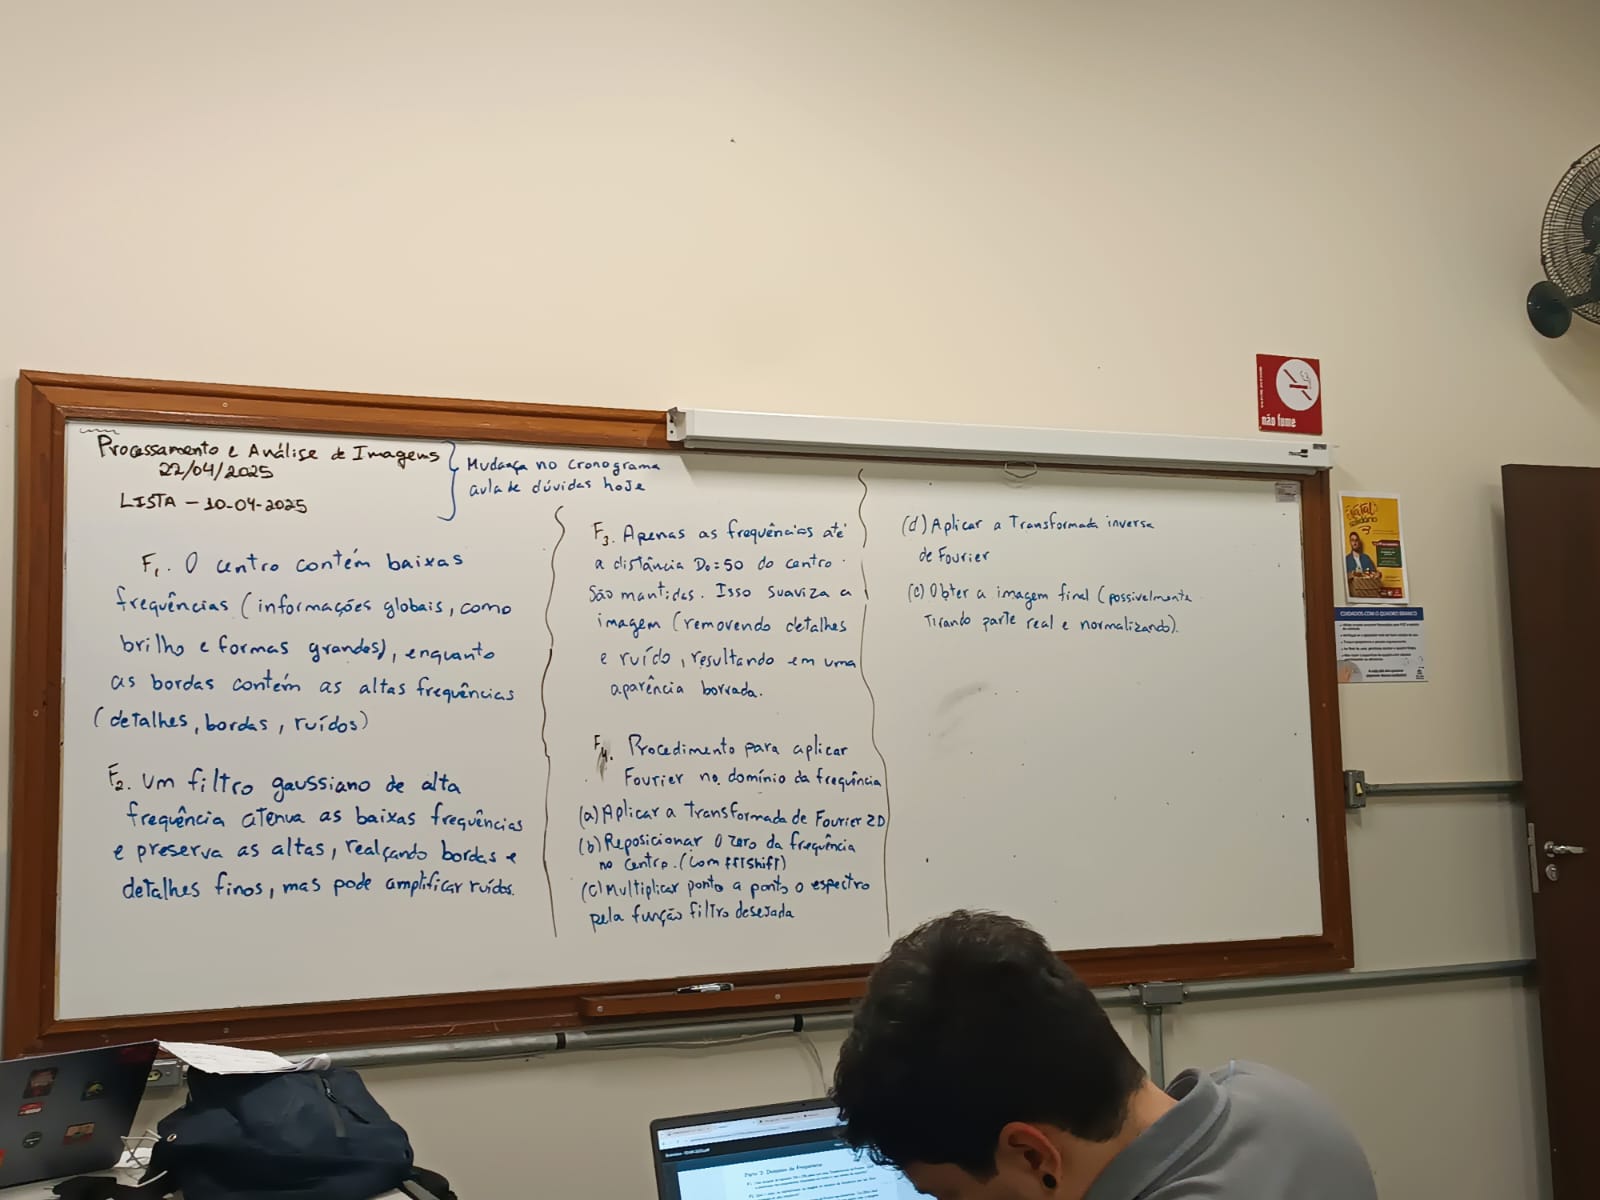 Processamento e Análise de Imagens
22/04/2025
LISTA - 10-04-2025
Mudança no cronograma
aula de dúvidas hoje
F1. O centro contém baixas
frequências (informações globais, como
brilho e formas grandes), enquanto
as bordas contém as altas frequências
(detalhes, bordas, ruídos)
F2. Um filtro gaussiano de alta
frequência atenua as baixas frequências
e preserva as altas, realçando bordas e
detalhes finos, mas pode amplificar ruídos.
F3. Apenas as frequências até
a distância D0=50 do centro
são mantidas. Isso suaviza a
imagem (removendo detalhes
e ruído, resultando em uma
aparência borrada.
F4. Procedimento para aplicar
Fourier no domínio da frequência
(a) Aplicar a Transformada de Fourier 2D
(b) Reposicionar o zero da frequência
no centro. (com fftshift)
(c) Multiplicar ponto a ponto o espectro
pela função filtro desejada
(d) Aplicar a Transformada inversa
de Fourier
(e) Obter a imagem final (possivelmente
tirando parte real e normalizando).
não fume
Natal
solidário
CUIDADOS COM O QUADRO BRANCO